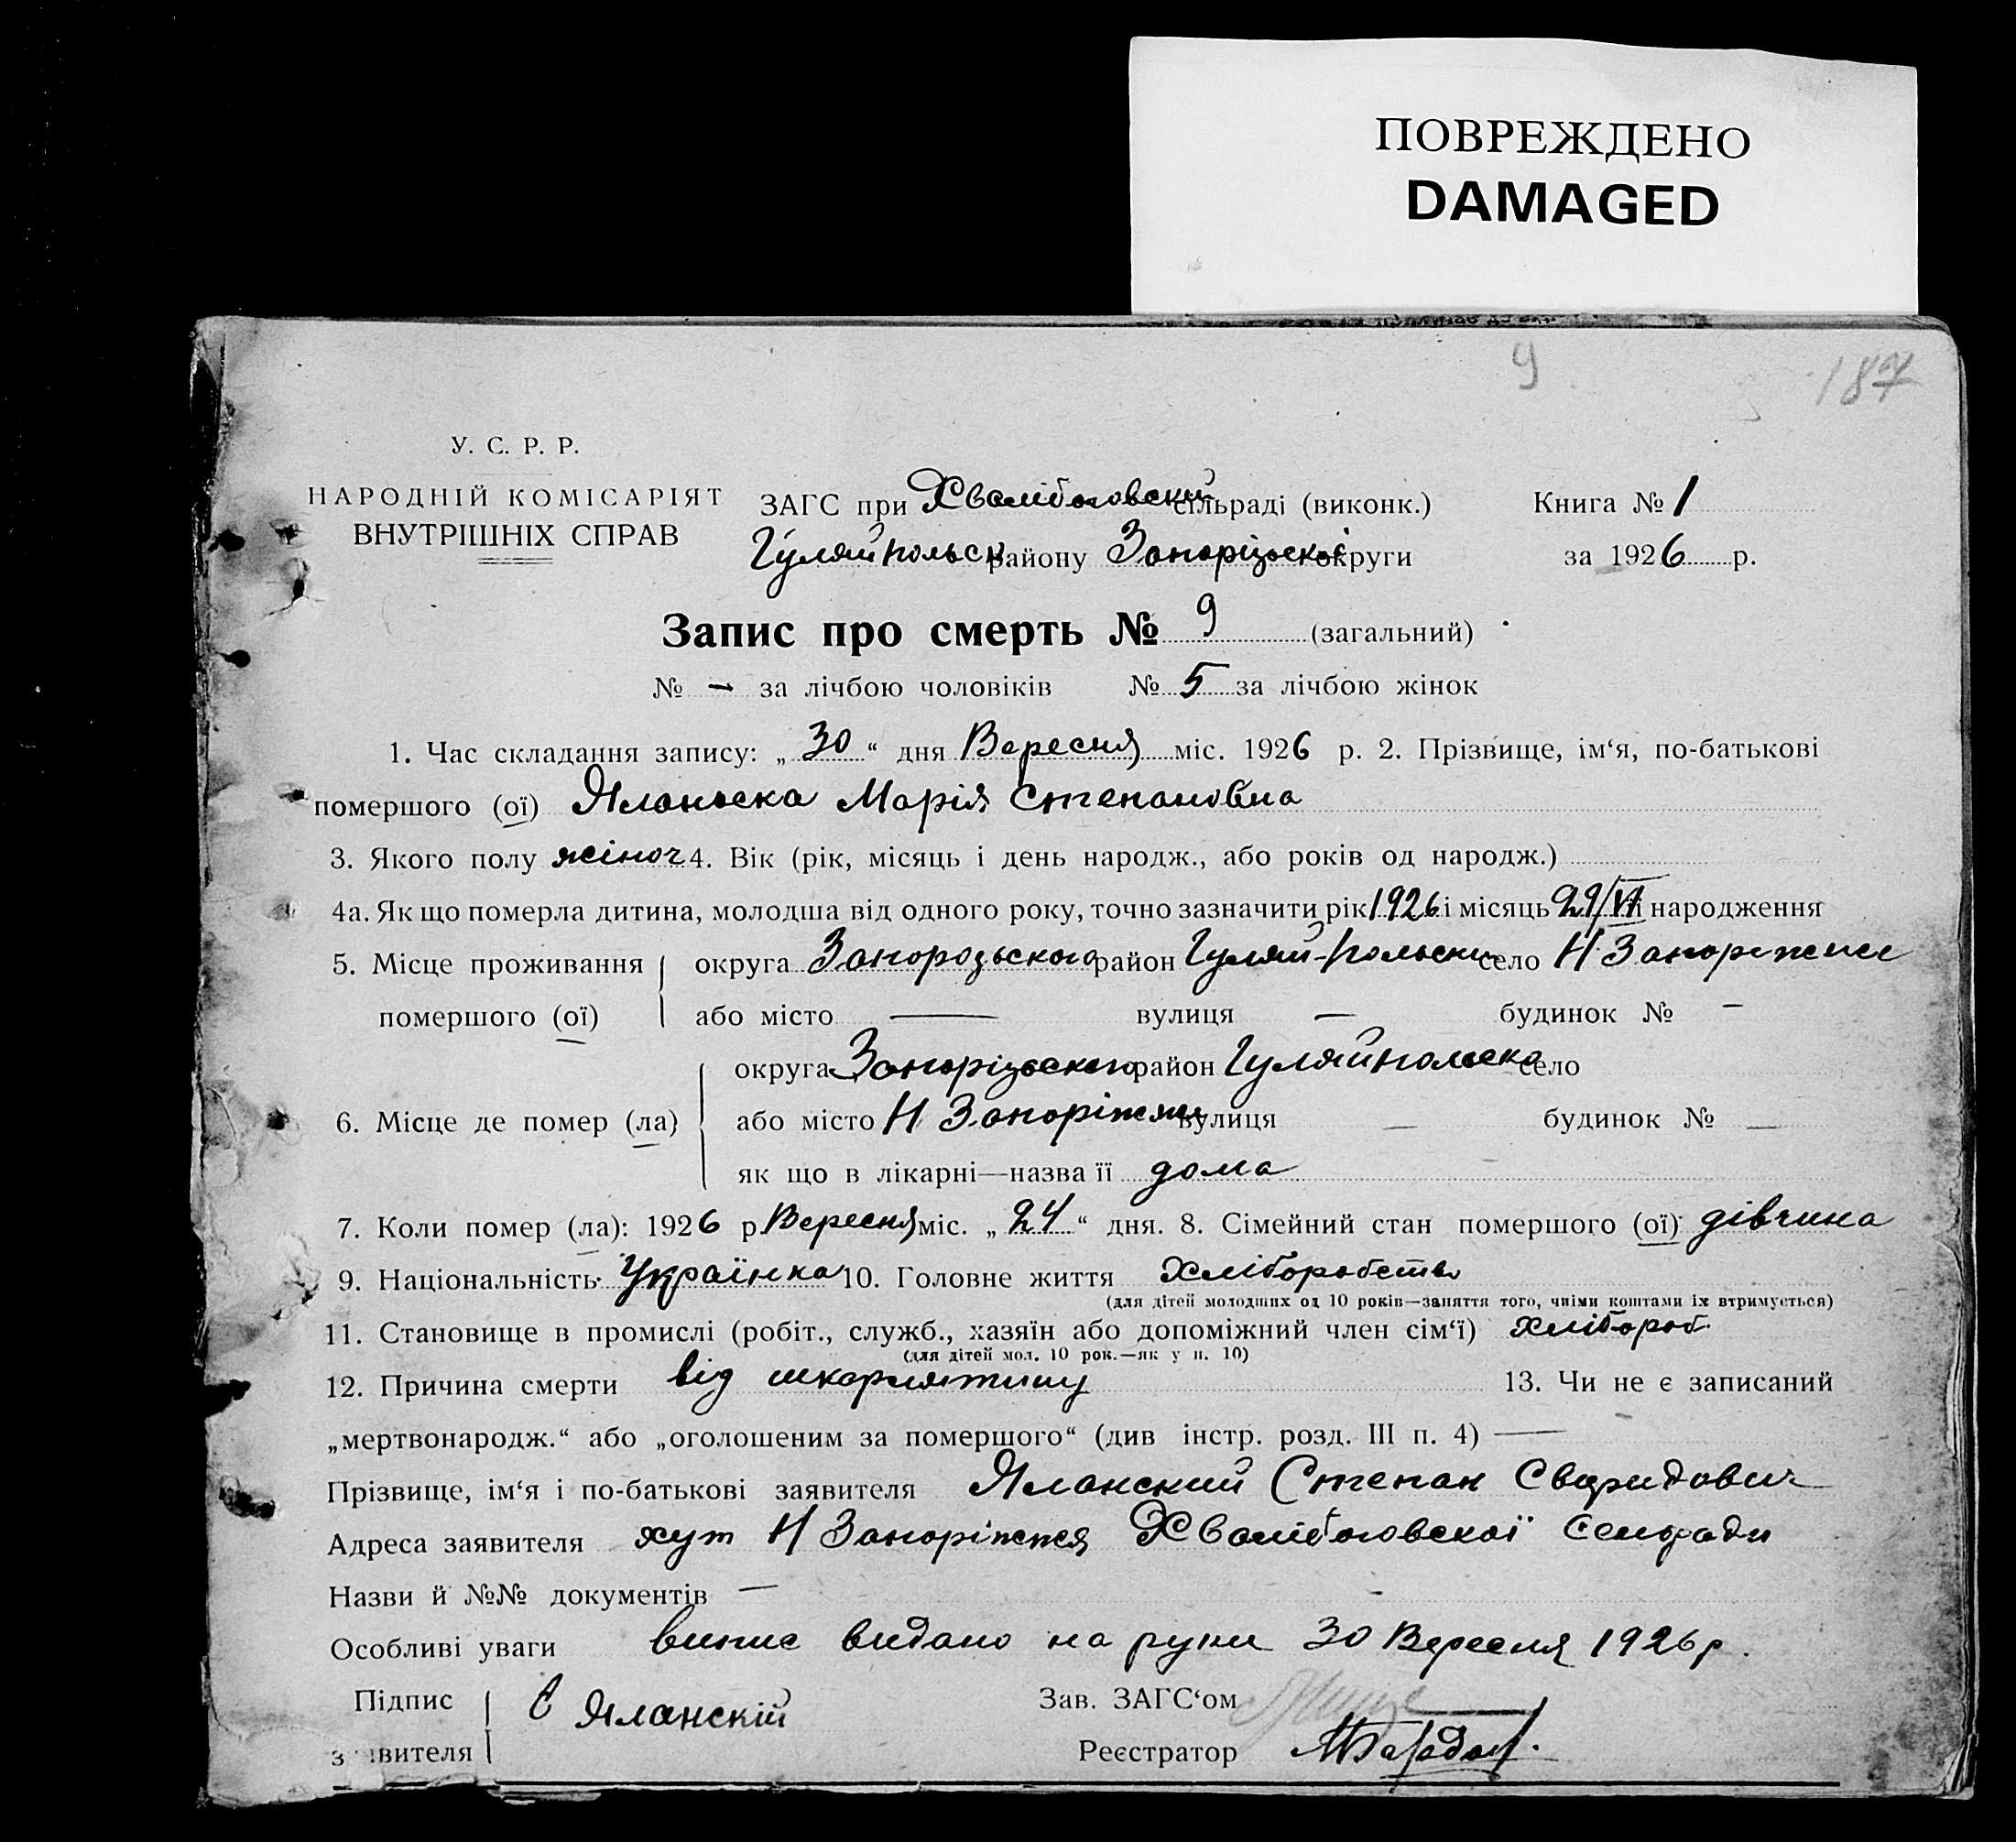 ПОВРЕЖДЕНО
DAMAGED
9
187
У. С. Р. Р.
НАРОДНІЙ КОМІСАРІЯТ
ВНУТРІШНІХ СПРАВ
ЗАГС при Хвалібоговскій сільраді (виконк.)
Книга № 1
Гуляйпольск району Запоріzької округи
за 1926 р.
Запис про смерть № 9 (загальний)
№ — за лічбою чоловіків № 5 за лічбою жінок
1. Час складання запису: „30“ дня Вересня міс. 1926 р. 2. Прізвище, ім‘я, по-батькові
помершого (ої) Яланьска Марія Степановна
3. Якого полу жіноч 4. Вік (рік, місяць і день народж., або років од народж.)
4а. Як що померла дитина, молодша від одного року, точно зазначити рік 1926 і місяць 29/VI народження
5. Місце проживання помершого (ої) округа Запорозьского район Гуляй-Польски село Н Запоріжжє
або місто — вулиця — будинок № —
6. Місце де помер (ла) округа Запорізського район Гуляйпольско село
або місто Н Запоріжжи вулиця — будинок № —
як що в лікарні—назва її дома
7. Коли помер (ла): 1926 р. Вересня міс. „24“ дня. 8. Сімейний стан помершого (ої) дівчина
9. Національність Українка 10. Головне життя Хліборобство
(для дітей молодших од 10 років—заняття того, чиїми коштами їх втримується)
11. Становище в промислі (робіт., служб., хазяїн або допоміжний член сім‘ї) хлібороб
(для дітей мол. 10 рок.—як у п. 10)
12. Причина смерти від шкарлятину 13. Чи не є записаний
„мертвонародж.“ або „оголошеним за помершого“ (див інстр. розд. III п. 4) —
Прізвище, ім‘я і по-батькові заявителя Яланский Степан Свиридович
Адреса заявителя хут Н Запоріжжя Хвалібоговскої Сельради
Назви й №№ документів —
Особливі уваги випис видано на руки 30 Вересня 1926 р.
Підпис заявителя С Яланскій
Зав. ЗАГС‘ом
Реєстратор